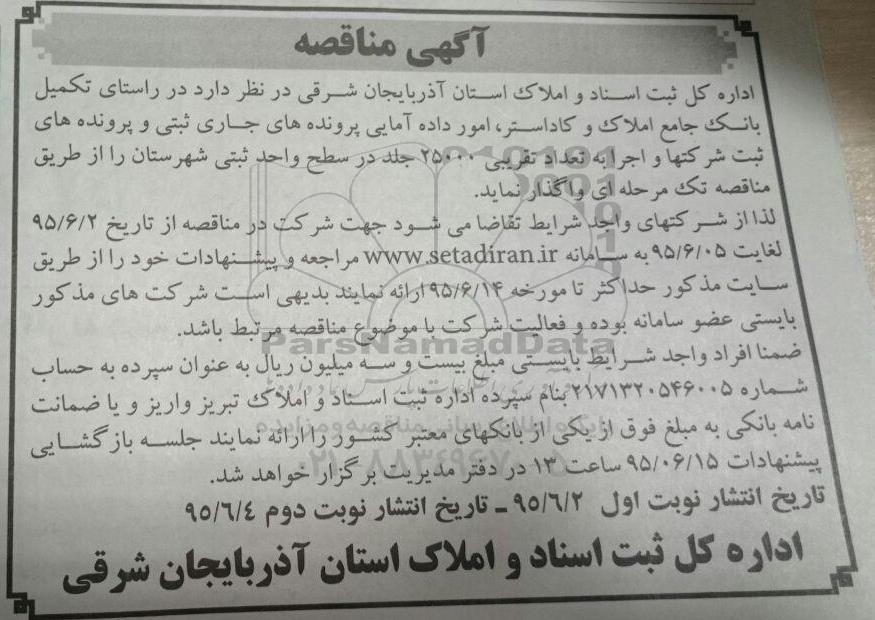 آگهی مناقصه
اداره کل ثبت اسناد و املاک استان آذربایجان شرقی در نظر دارد در راستای تکمیل
بانک جامع املاک و کاداستر، امور داده آمایی پرونده های جاری ثبتی و پرونده های
ثبت شرکتها و اجرا به تعداد تقریبی ۲۵۰۰۰ جلد در سطح واحد ثبتی شهرستان را از طریق
مناقصه تک مرحله ای واگذار نماید.
لذا از شرکتهای واجد شرایط تقاضا می شود جهت شرکت در مناقصه از تاریخ ۹۵/۶/۲
لغایت ۹۵/۶/۰۵ به سامانه www.setadiran.ir مراجعه و پیشنهادات خود را از طریق
سایت مذکور حداکثر تا مورخه ۹۵/۶/۱۴ ارائه نمایند بدیهی است شرکت های مذکور
بایستی عضو سامانه بوده و فعالیت شرکت با موضوع مناقصه مرتبط باشد.
ParsNamadData
ضمنا افراد واجد شرایط بایستی مبلغ بیست و سه میلیون ریال به عنوان سپرده به حساب
شماره ۲۱۷۱۳۲۰۵۴۶۰۰۵ بنام سپرده اداره ثبت اسناد و املاک تبریز واریز و یا ضمانت
نامه بانکی به مبلغ فوق از یکی از بانکهای معتبر کشور را ارائه نمایند جلسه بازگشایی
پیشنهادات ۹۵/۰۶/۱۵ ساعت ۱۳ در دفتر مدیریت برگزار خواهد شد.
تاریخ انتشار نوبت اول ۹۵/۶/۲ ـ تاریخ انتشار نوبت دوم ۹۵/۶/۴
اداره کل ثبت اسناد و املاک استان آذربایجان شرقی